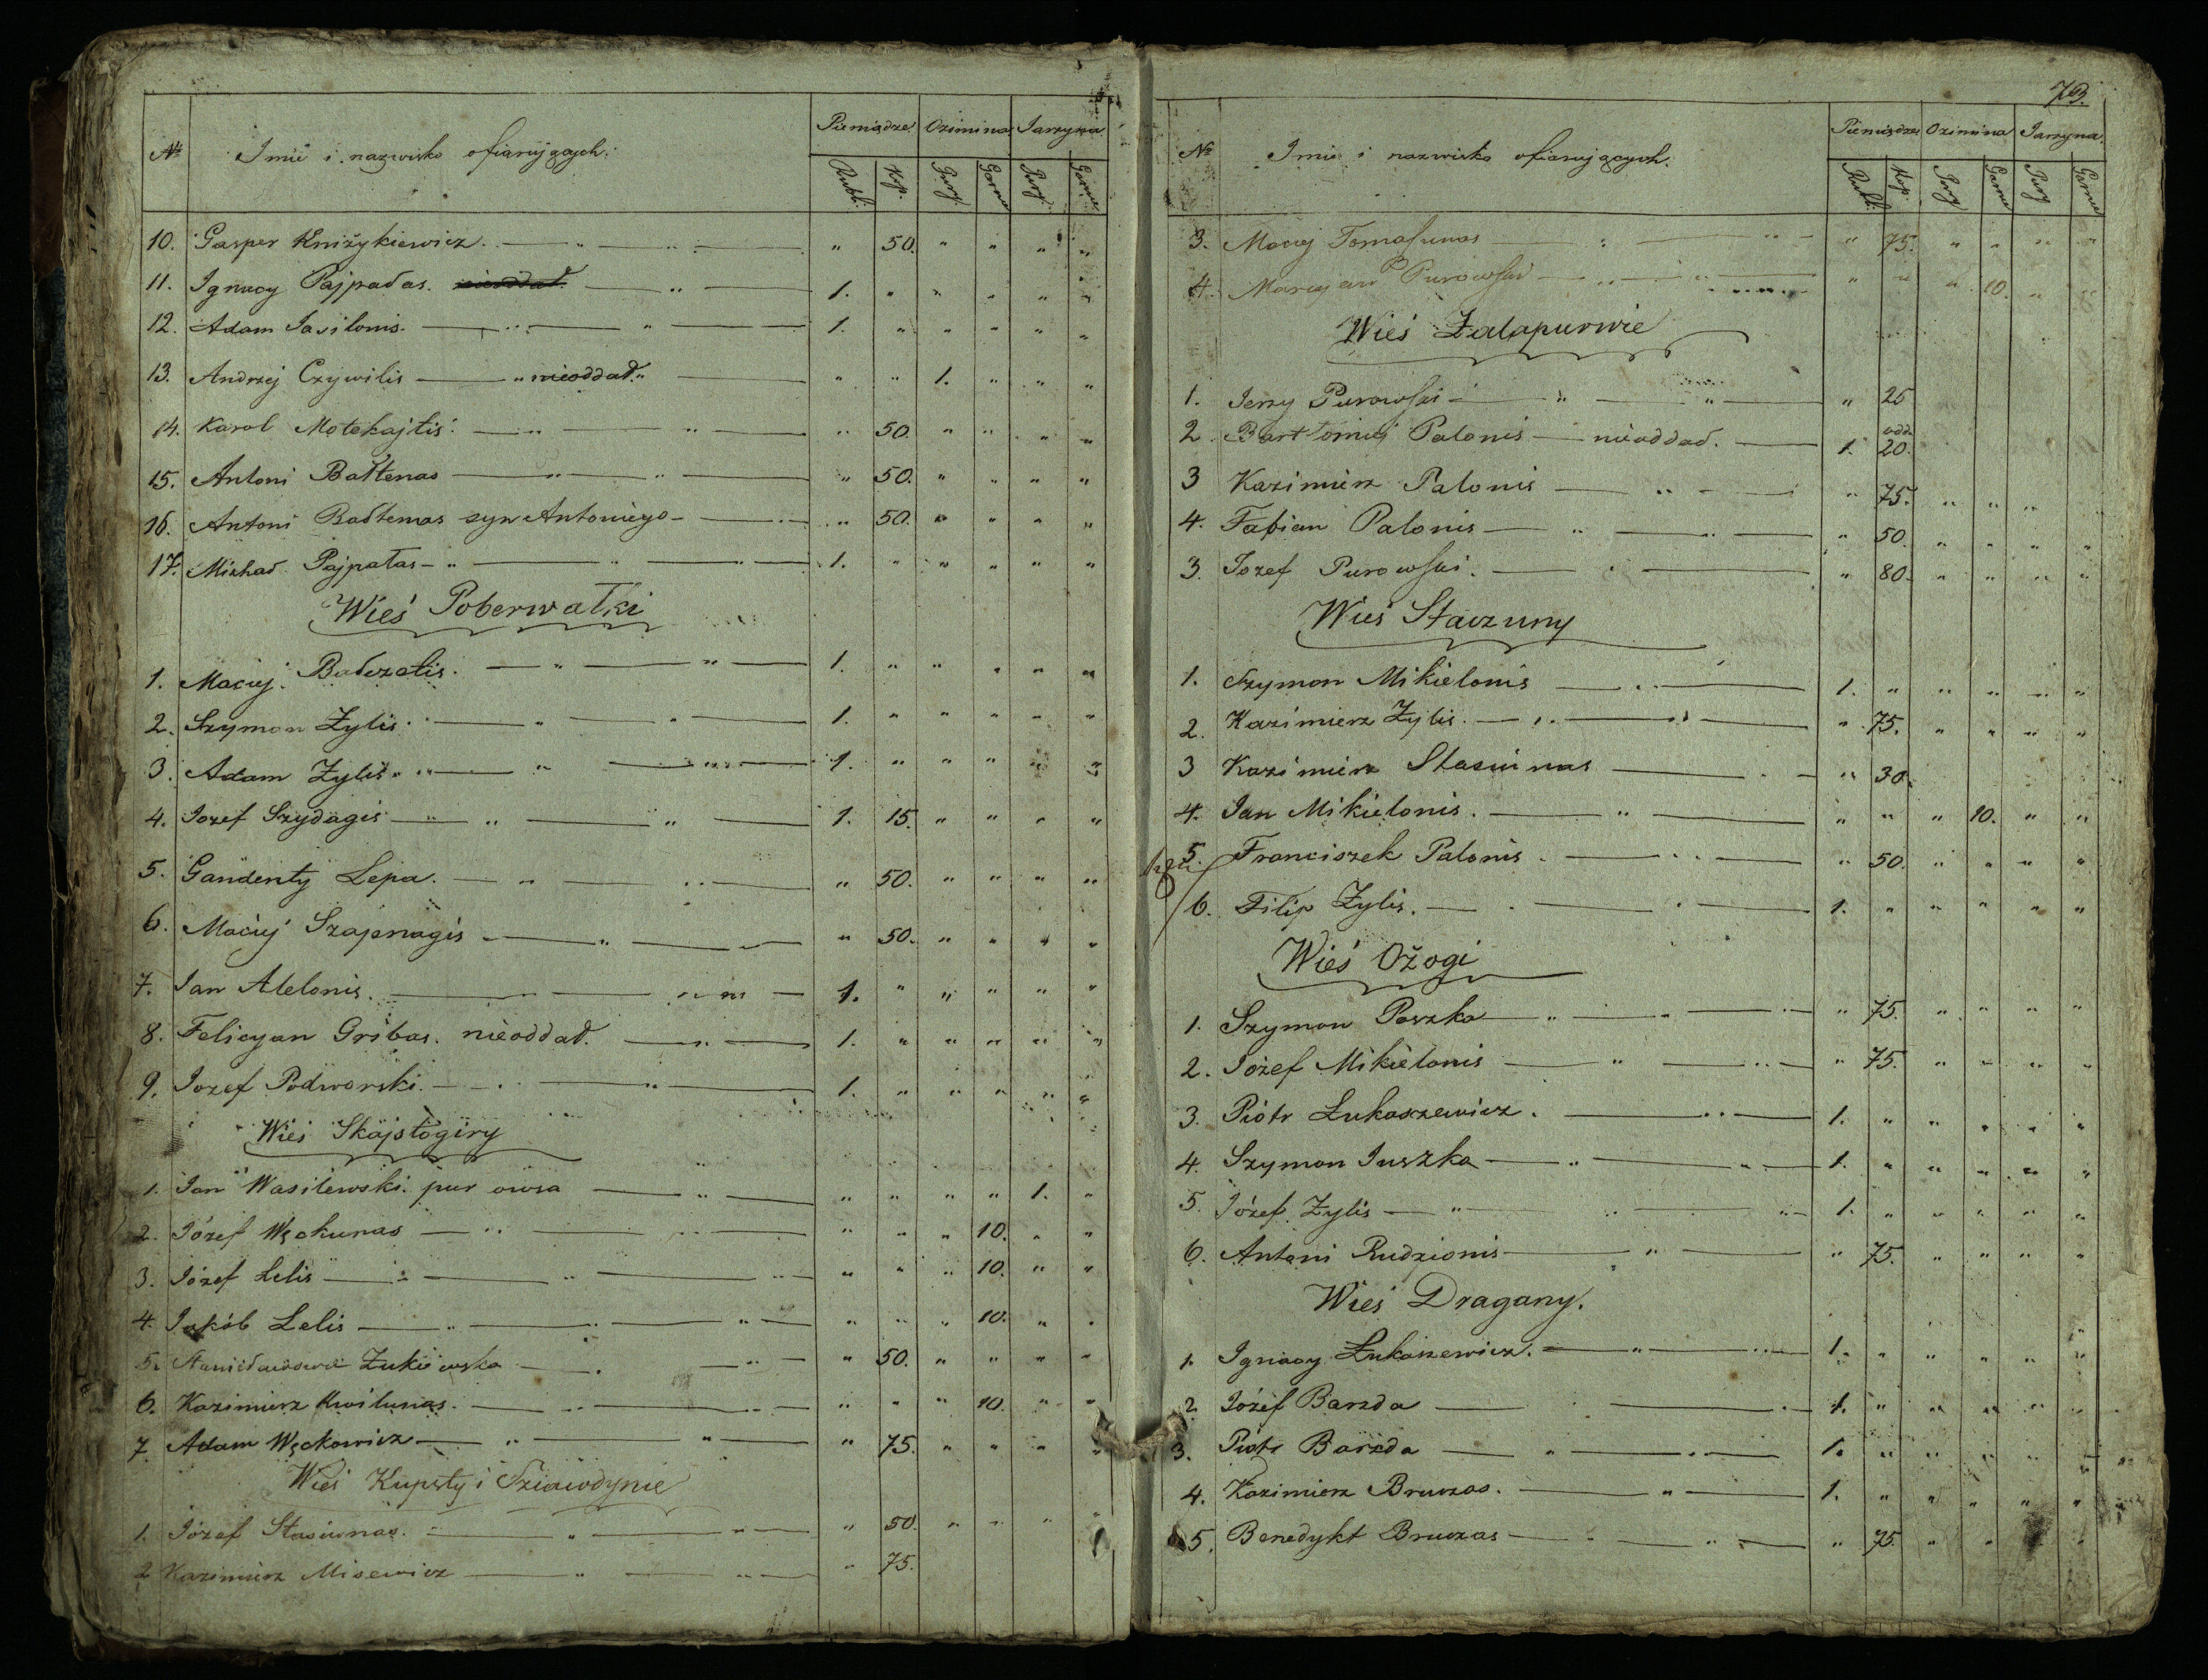 Pieniądze Ozimina Jarzyna
№ Imie i nazwisko ofiarujących:
Rubl: Kop. Pury Garnce Pury Garnce
10. Gasper Kniżykiewicz. " 50. " " " "
11. Ignacy Pajpałas. 1. " " " " "
12. Adam Jasilonis. 1. " " " " "
13. Andrzej Czywilis " nieoddał. " " " 1. " " "
14. Karol Motekajtis. " 50. " " " "
15. Antoni Bałtenas " 50. " " " "
16. Antoni Bałtenas syn Antoniego " 50. " " " "
17. Michał Pajpałas 1. " " " " "
Wieś Poberwałki
1. Maciej Balczatis. 1. " " " " "
2. Szymon Żylis. 1. " " " " "
3. Adam Żylis 1. " " " " "
4. Jozef Szydagis 1. 15. " " " "
5. Gaudenty Lepa. " 50. " " " "
6. Maciej Szajenagis " 50. " " " "
7. Jan Alelonis. 1. " " " " "
8. Felicyan Gribas. nieoddał. 1. " " " " "
9. Jozef Podworski. 1. " " " " "
Wieś Skajstogiry
1. Jan Wasilewski pur owsa " " " " 1. "
2. Józef Węckunas " " " 10. " "
3. Józef Lelis " " " 10. " "
4. Jakób Lelis " " " 10. " "
5. Stanisławowa Żukiewska " 50. " " " "
6. Kazimierz Kwilunas. " " " 10. " "
7. Adam Węckowicz " 75. " " " "
Wieś Kupsty i Sziawdynie
1. Józef Stasiunas. " 50. " " " "
2 Kazimierz Misewicz " 75.
73.
Pieniądze Ozimina Jarzyna.
№ Imie i nazwisko ofiarujących.
Rubl: Kop. Pury Garnce Pury Garnce
3. Maciej Tomaſunas " 75. " " " "
4. Marcyan Purowſki " " " 10. " "
Wieś Żalapurwie
1. Jerzy Purowſki " 25
2. Bartłomiej Palonis nieoddał. 1. 20.
3 Kazimierz Palonis " 75. " " "
4. Fabian Palonis " 50. " " " "
3. Jozef Purowſki. " 80. " " " "
Wieś Staczuny
1. Szymon Mikielonis 1. " " " " "
2. Kazimierz Żylis. " 75. " " " "
3 Kazimierz Stasiunas " 30.
4. Jan Mikielonis. " " " 10. " "
5. Franciszek Palonis. " 50. " " " "
6. Filip Żylis. 1. " " " " "
Wieś Ożogi
1. Szymon Paszka " 75. " " " "
2. Józef Mikielonis " 75. " " " "
3. Piotr Łukaszewicz. 1. " " " " "
4. Szymon Juszka 1. " " " " "
5. Józef Żylis 1. " " " " "
6. Antoni Rudzionis " 75. " " " "
Wieś Dragany.
1. Ignacy Łukaszewicz. 1. " " " " "
2. Józef Barzda 1. " " " " "
3. Piotr Barzda 1. " " " " "
4. Kazimierz Bruczas. 1. " " " " "
5. Benedykt Bruczas " 75. " " " "